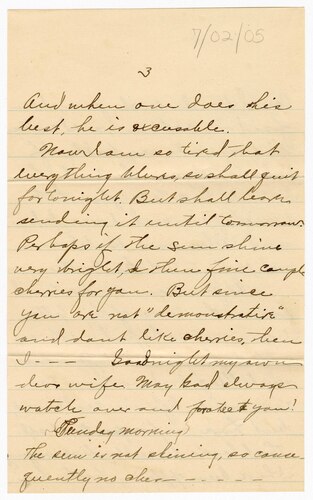 7/02/05
3
And when one does his
best, he is excusable.
Now I am so tired that
everything blurs, so shall quit
for tonight. But shall leave
sending it until tomorrow.
Perhaps if the sun shine
very bright, & then fine couple
cherries for you. But since
you "are not "demonstrative"
and dont like cherries, then
I - - - Goodnight my own
dear wife May God always
watch over and protect you!
(Sunday morning)
The sun is not shining, so conse
quently no cher - - - - -